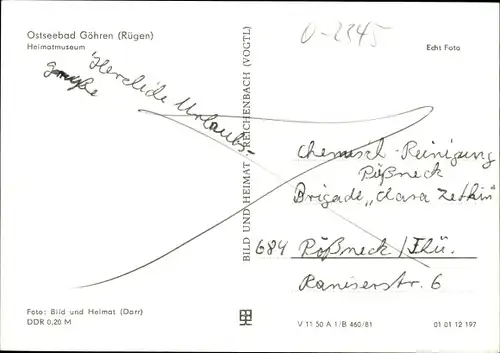 Ostseebad Göhren (Rügen)
Heimatmuseum
O-2345
Echt Foto
Herzliche Urlaubs-
grüße
BILD UND HEIMAT REICHENBACH (VOGTL)
Chemisch-Reinigung
Pößneck
Brigade „Clara Zetkin"
684 Pößneck/Thü.
Raniserstr. 6
Foto: Bild und Heimat (Darr)
DDR 0,20 M
V 11 50 A 1/B 460/81
01 01 12 197